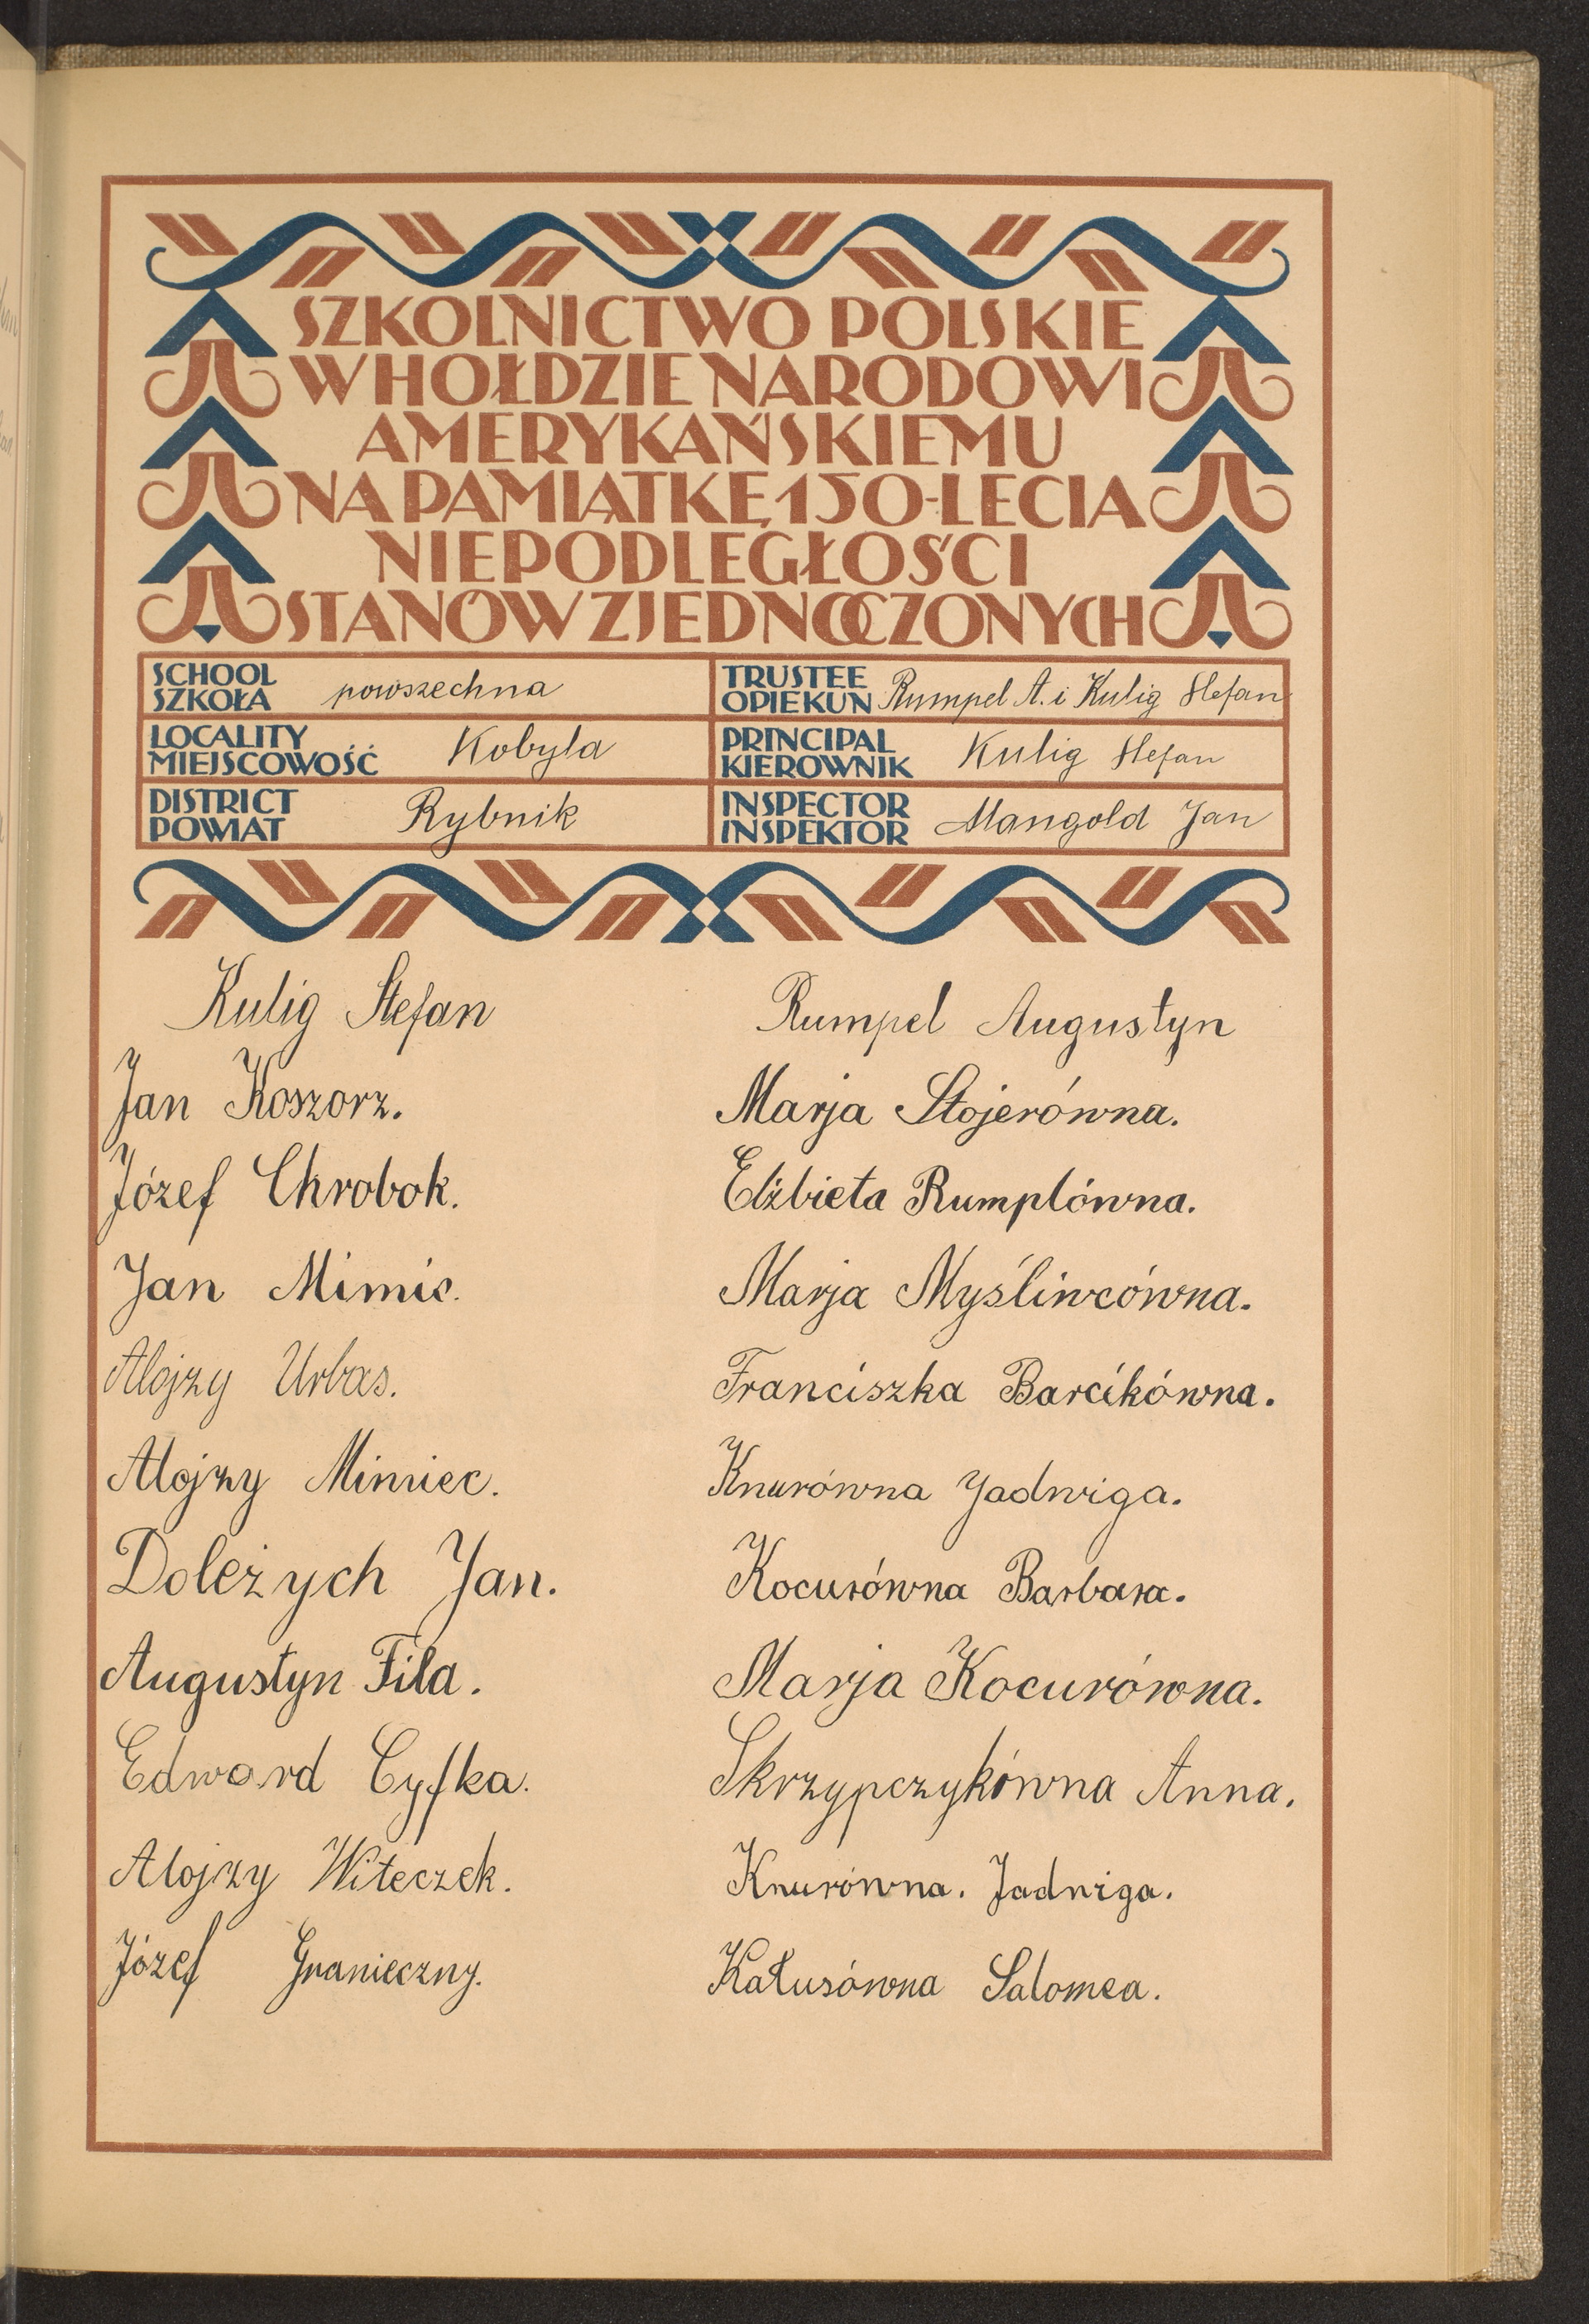 SZKOLNICTWO POLSKIE
W HOŁDZIE NARODOWI
AMERYKAŃSKIEMU
NA PAMIĄTKĘ 150-LECIA
NIEPODLEGŁOŚCI
STANÓW ZJEDNOCZONYCH
SCHOOL
SZKOŁA powszechna
TRUSTEE
OPIEKUN Rumpel A. i Kulig Stefan
LOCALITY
MIEJSCOWOŚĆ Kobyla
PRINCIPAL
KIEROWNIK Kulig Stefan
DISTRICT
POWIAT Rybnik
INSPECTOR
INSPEKTOR Mangold Jan
Kulig Stefan
Jan Koszorz.
Józef Chrobok.
Jan Mimic.
Alojzy Urbas.
Alojzy Mimiec.
Doleżych Jan.
Augustyn Fila.
Edward Cyfka.
Alojzy Witeczek.
Józef Granieczny.
Rumpel Augustyn
Marja Stojerówna.
Elżbieta Rumplówna.
Marja Myśliwcówna.
Franciszka Barcikówna.
Knurówna Jadwiga.
Kocurówna Barbara.
Marja Kocurówna.
Skrzypczykówna Anna.
Knurówna. Jadwiga.
Kałusówna Salomea.